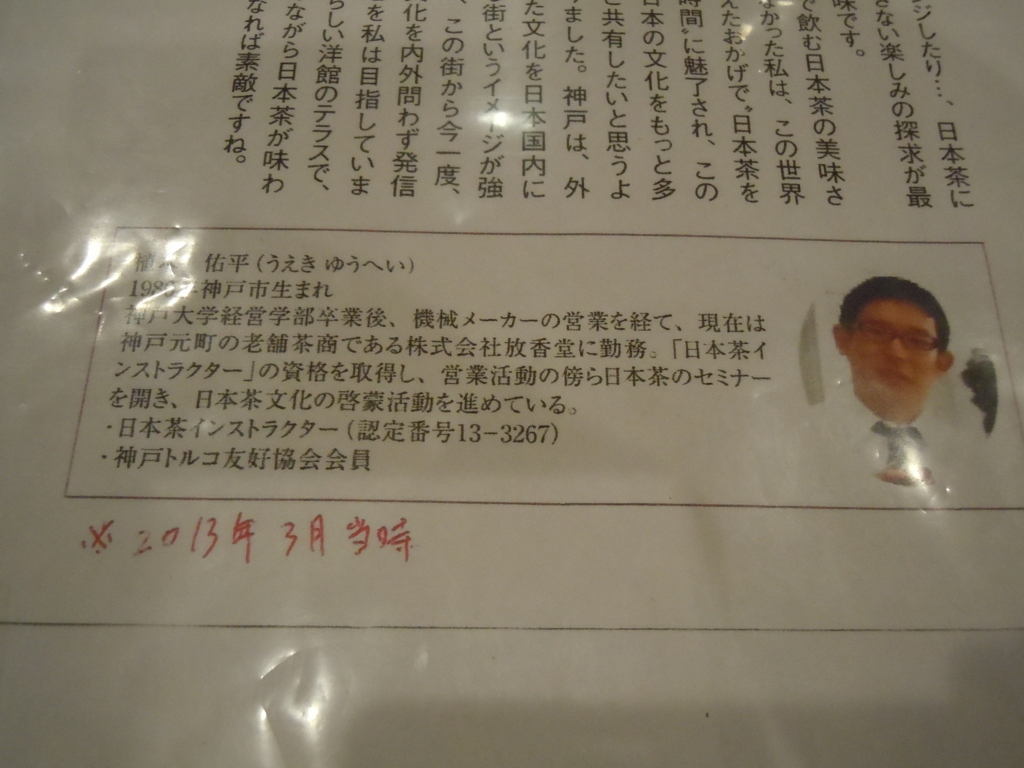 ジしたり…、日本茶に
さない楽しみの探求が最
味です。
で飲む日本茶の美味さ
よかった私は、この世界
えたおかげで〝日本茶を
時間〟に魅了され、この
日本の文化をもっと多
と共有したいと思うよ
りました。神戸は、外
た文化を日本国内に
街というイメージが強
、この街から今一度、
化を内外問わず発信
を私は目指していま
らしい洋館のテラスで、
ながら日本茶が味わ
なれば素敵ですね。
佑平(うえき ゆうへい)
神戸市生まれ
神戸大学経営学部卒業後、機械メーカーの営業を経て、現在は
神戸元町の老舗茶商である株式会社放香堂に勤務。「日本茶イ
ンストラクター」の資格を取得し、営業活動の傍ら日本茶のセミナー
を開き、日本茶文化の啓蒙活動を進めている。
・日本茶インストラクター(認定番号13-3267)
・神戸トルコ友好協会会員
※2013年3月当時